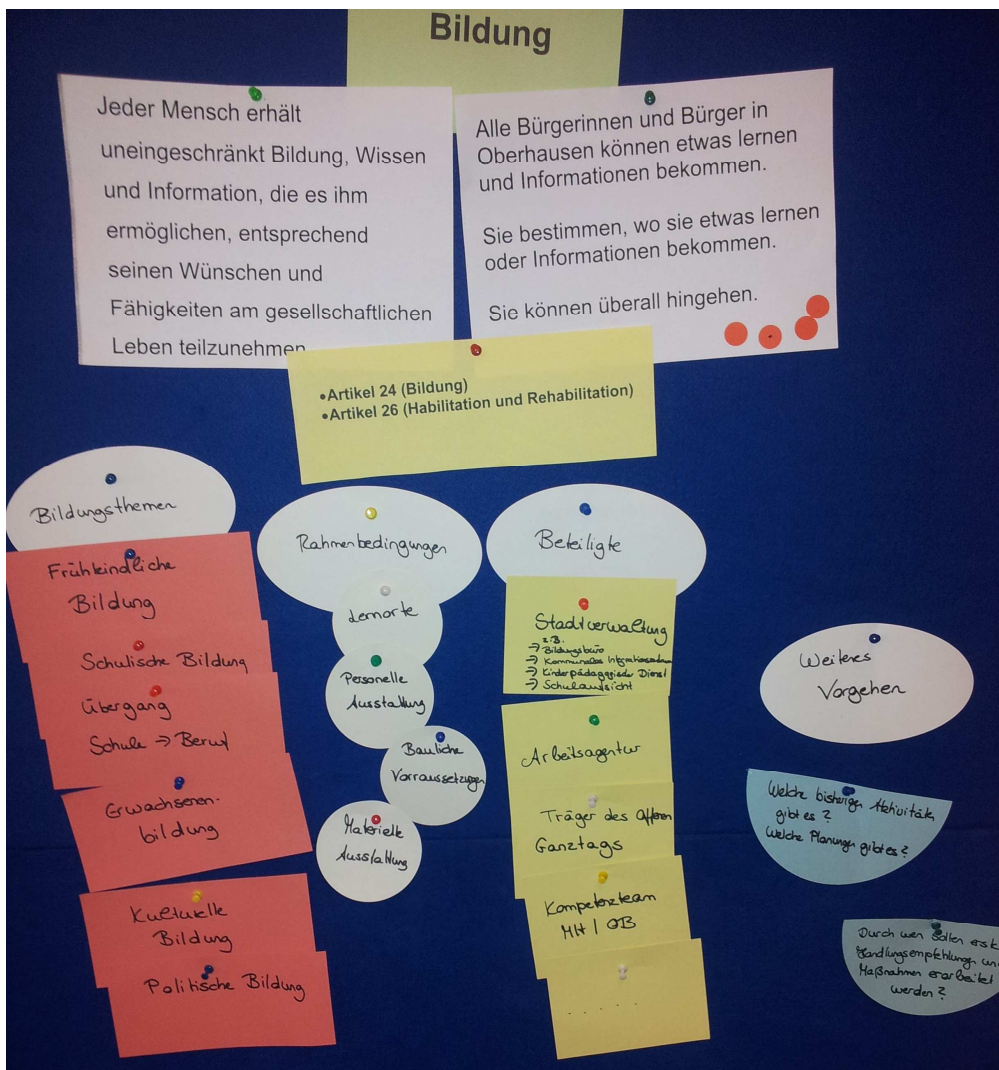 Bildung
Jeder Mensch erhält
uneingeschränkt Bildung, Wissen
und Information, die es ihm
ermöglichen, entsprechend
seinen Wünschen und
Fähigkeiten am gesellschaftlichen
Leben teilzunehmen
Alle Bürgerinnen und Bürger in
Oberhausen können etwas lernen
und Informationen bekommen.
Sie bestimmen, wo sie etwas lernen
oder Informationen bekommen.
Sie können überall hingehen.
•Artikel 24 (Bildung)
•Artikel 26 (Habilitation und Rehabilitation)
Bildungsthemen
Frühkindliche
Bildung
Schulische Bildung
Übergang
Schule → Beruf
Erwachsenen-
bildung
Kulturelle
Bildung
Politische Bildung
Rahmenbedingungen
Lernorte
Personelle
Ausstattung
Bauliche
Vorraussetzungen
Materielle
Ausstattung
Beteiligte
Stadtverwaltung
z.B.
→ Bildungsbüro
→ Kommunales
→ Kinderpädagogischer Dienst
→ Schulaufsicht
Arbeitsagentur
Träger des Offenen
Ganztags
Kompetenzteam
MH / OB
. . . . .
Weiteres
Vorgehen
Welche bisherigen Aktivitäten
gibt es?
Welche Planungen gibt es?
Durch wen sollen erste
Handlungsempfehlungen un
Maßnahmen erarbeitet
werden?